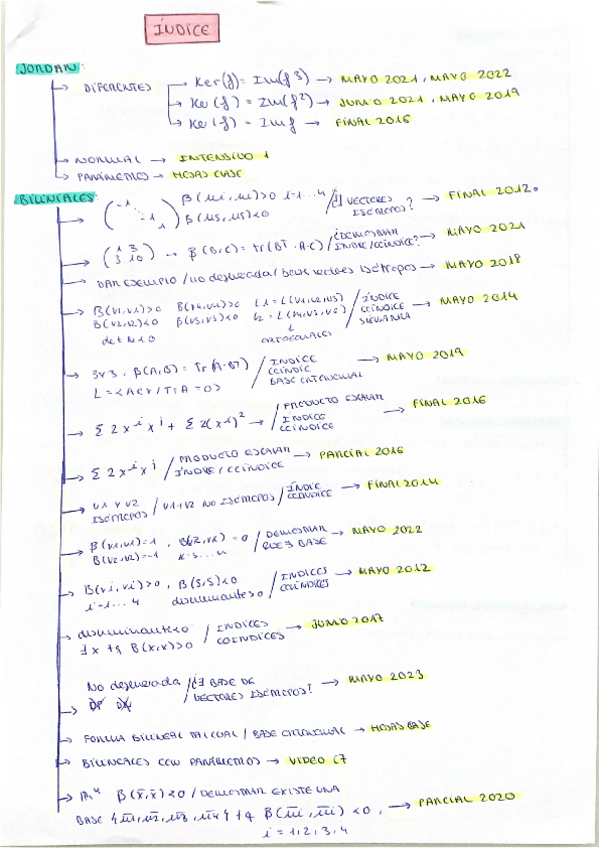 ÍNDICE
JORDAN:
DIFERENTES → Ker(f) = Im(f³) → MAYO 2021, MAYO 2022
→ Ker(f) = Im(f²) → JUNIO 2021, MAYO 2019
→ Ker(f) = Imf → FINAL 2016
→ NORMAL → INTENSIVO 1
→ PARÁMETROS → HOJAS CLASE
BILINEALES:
→ (-1 -1 -1) β(ui, ui)>0 i=1...4 β(u5, u5)<0 /¿∃ VECTORES ISÓTROPOS? → FINAL 2012
→ (1 3 3 10) → β(B,C) = tr(Bᵗ · A · C) /¿DEMOSTRAR ÍNDICE/COÍNDICE? → MAYO 2021
→ DAR EJEMPLO / no degenerada / base vectores isótropos → MAYO 2018
→ B(v1,v1)>0 B(v4,v4)>0 L1 = L(v1,v2,v3) / ÍNDICE → MAYO 2014
B(v2,v2)<0 β(v5,v5)<0 L2 = L(v4,v5,v6) COÍNDICE
det M<0 ↓ ORTOGONALES SIGNATURA
→ 3x3, β(A,B) = Tr(A·Bᵗ) / INDICE COINDICE BASE ORTONORMAL → MAYO 2019
L = <A∈V/TrA = 0>
→ Σ 2xⁱxʲ + Σ 2(xⁱ)² → / PRODUCTO ESCALAR INDICE COINDICE → FINAL 2016
→ Σ 2xⁱxʲ / PRODUCTO ESCALAR ÍNDICE / COINDICE → PARCIAL 2016
→ v1 Y v2 ISÓTROPOS / v1+v2 NO ISÓTROPOS / ÍNDICE COINDICE → FINAL 2014
→ β(v1,v1)=1, B(v2,vk) = 0 / DEMOSTRAR → MAYO 2022
B(v2,v2)=-1 k=3...n QUE ∃ BASE
→ B(vi,vi)>0, β(5,5)<0 / INDICES → MAYO 2012
i=1...4 discriminante>0 COINDICES
→ discriminante<0 / INDICES → JUNIO 2017
∃ x tq B(x,x)>0 COINDICES
No degenerada /¿∃ BASE DE → MAYO 2023
→ VECTORES ISÓTROPOS?
→ FORMA BILINEAL TAL CUAL / BASE ORTONORMAL → HOJAS CLASE
→ BILINEALES CON PARÁMETROS → VIDEO 67
→ ℝ⁴ β(x̄,x̄)<0 / DEMOSTRAR EXISTE UNA
BASE {ū1, ū2, ū3, ū4} tq β(ūi, ūi) < 0, → PARCIAL 2020
i = 1, 2, 3, 4